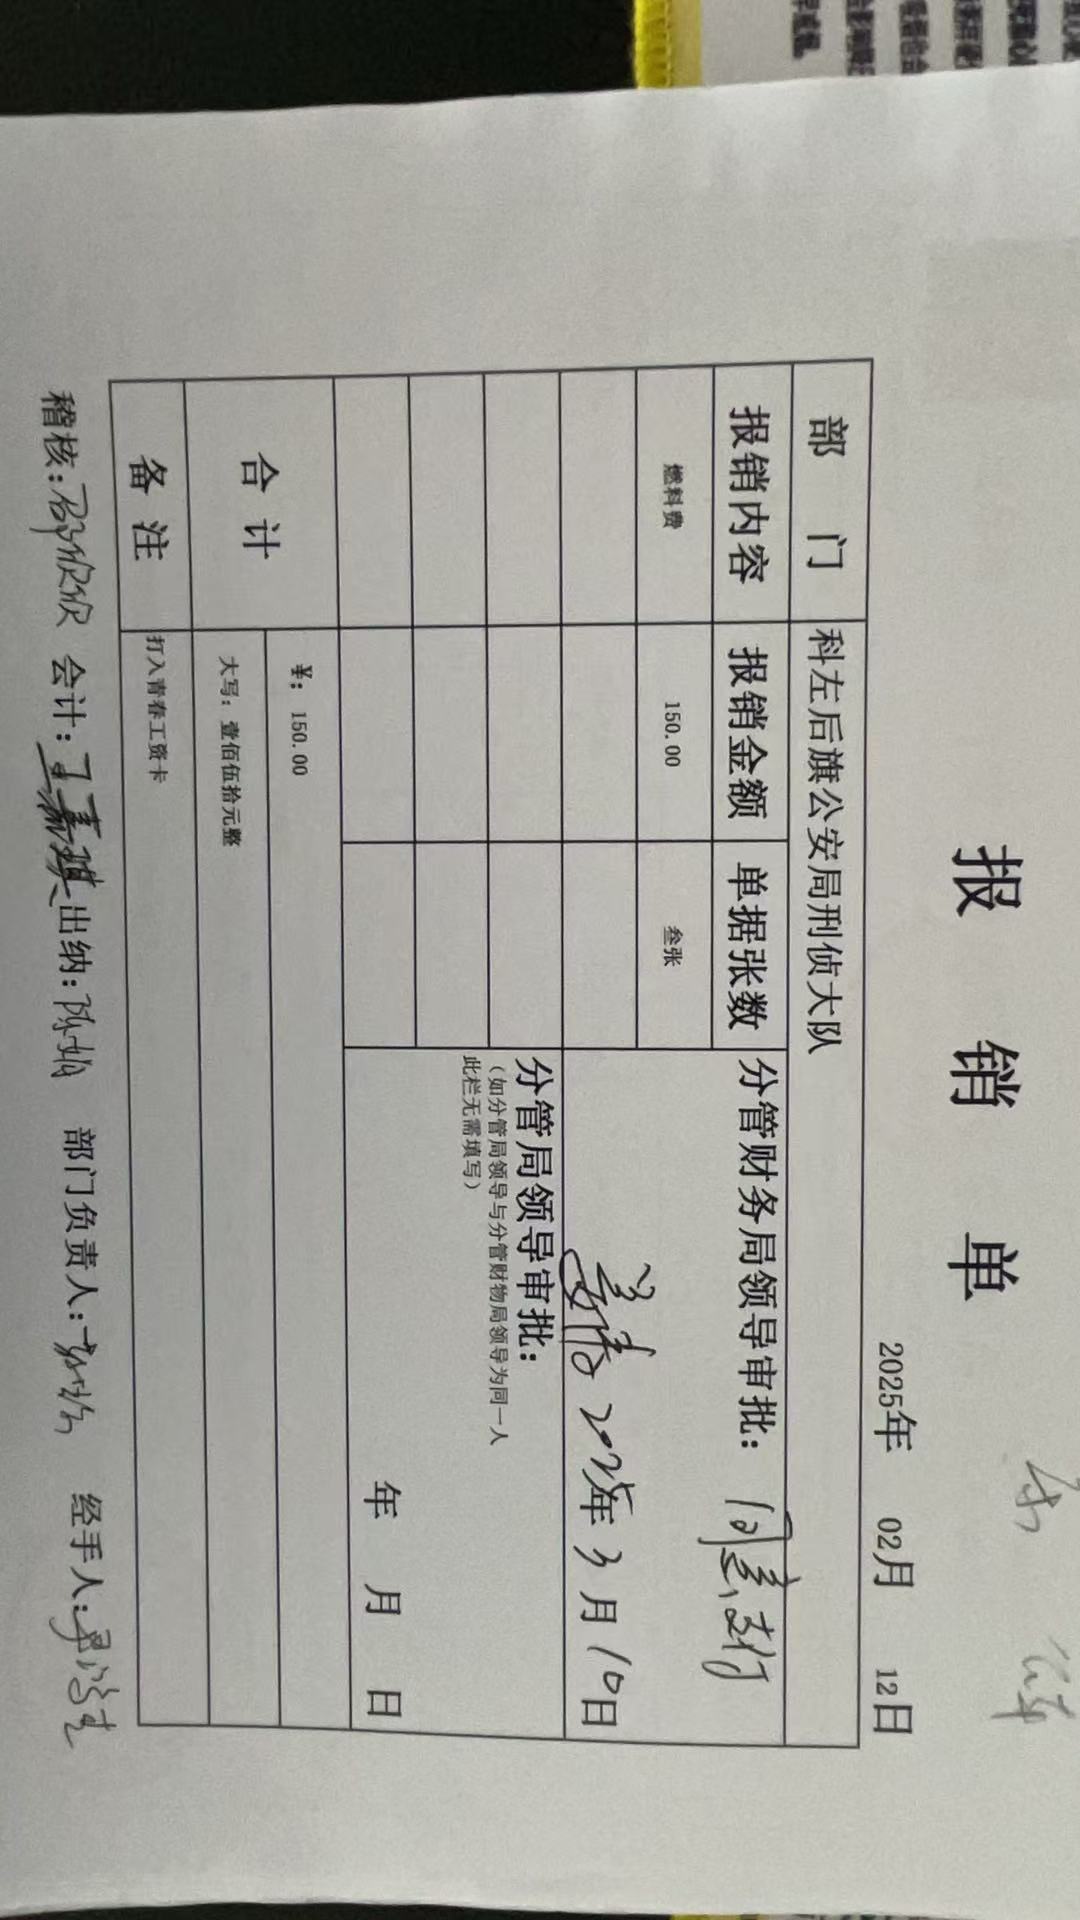 报 销 单
2025年 02月 12日
部 门 科左后旗公安局刑侦大队
报销内容 报销金额 单据张数 分管财务局领导审批： 同意支付
燃料费 150.00 叁张
2025年3月10日
分管局领导审批：
（如分管局领导与分管财物局领导为同一人
此栏无需填写）
年 月 日
合 计 ¥：150.00
大写：壹佰伍拾元整
备 注 打入青春工资卡
稽核：邵欣欣 会计： 出纳：陈娟 部门负责人： 经手人：